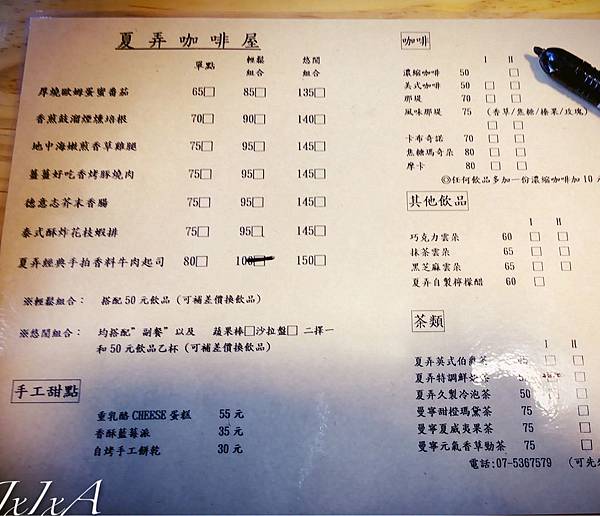 夏弄咖啡屋
單點 輕鬆組合 悠閒組合
厚燒歐姆蛋蜜番茄 65□ 85□ 135□
香煎鼓溜煙燻培根 70□ 90□ 140□
地中海嫩煎香草雞腿 75□ 95□ 145□
薑薑好吃香烤豚燒肉 75□ 95□ 145□
德意志芥末香腸 75□ 95□ 145□
泰式酥炸花枝蝦排 75□ 95□ 145□
夏弄經典手拍香料牛肉起司 80□ 100□ 150□
※輕鬆組合: 搭配50元飲品(可補差價換飲品)
※悠閒組合: 均搭配"副餐"以及 蔬果棒□沙拉盤□ 二擇一
和50元飲品乙杯(可補差價換飲品)
手工甜點
重乳酪CHEESE蛋糕 55元
香酥藍莓派 35元
自烤手工餅乾 30元
咖啡
I II
濃縮咖啡 50 □
美式咖啡 50 □ □
那堤 70 □ □
風味那堤 75 (香草/焦糖/榛果/玫瑰)
□ □
卡布奇諾 70 □ □
焦糖瑪奇朵 80 □ □
摩卡 80 □ □
◎任何飲品多加一份濃縮咖啡加10
其他飲品
I II
巧克力雲朵 60 □ □
抹茶雲朵 65 □ □
黑芝麻雲朵 65 □ □
夏弄自製檸檬醋 60 □
茶類
I II
夏弄英式伯爵茶 45 □ □
夏弄特調鮮奶茶 □
夏弄久製冷泡茶 50 □ □
曼寧甜橙瑪黛茶 75 □
曼寧夏威夷果茶 75 □
曼寧元氣香草勁茶 75 □
電話:07-5367579 (可先
JxIxA